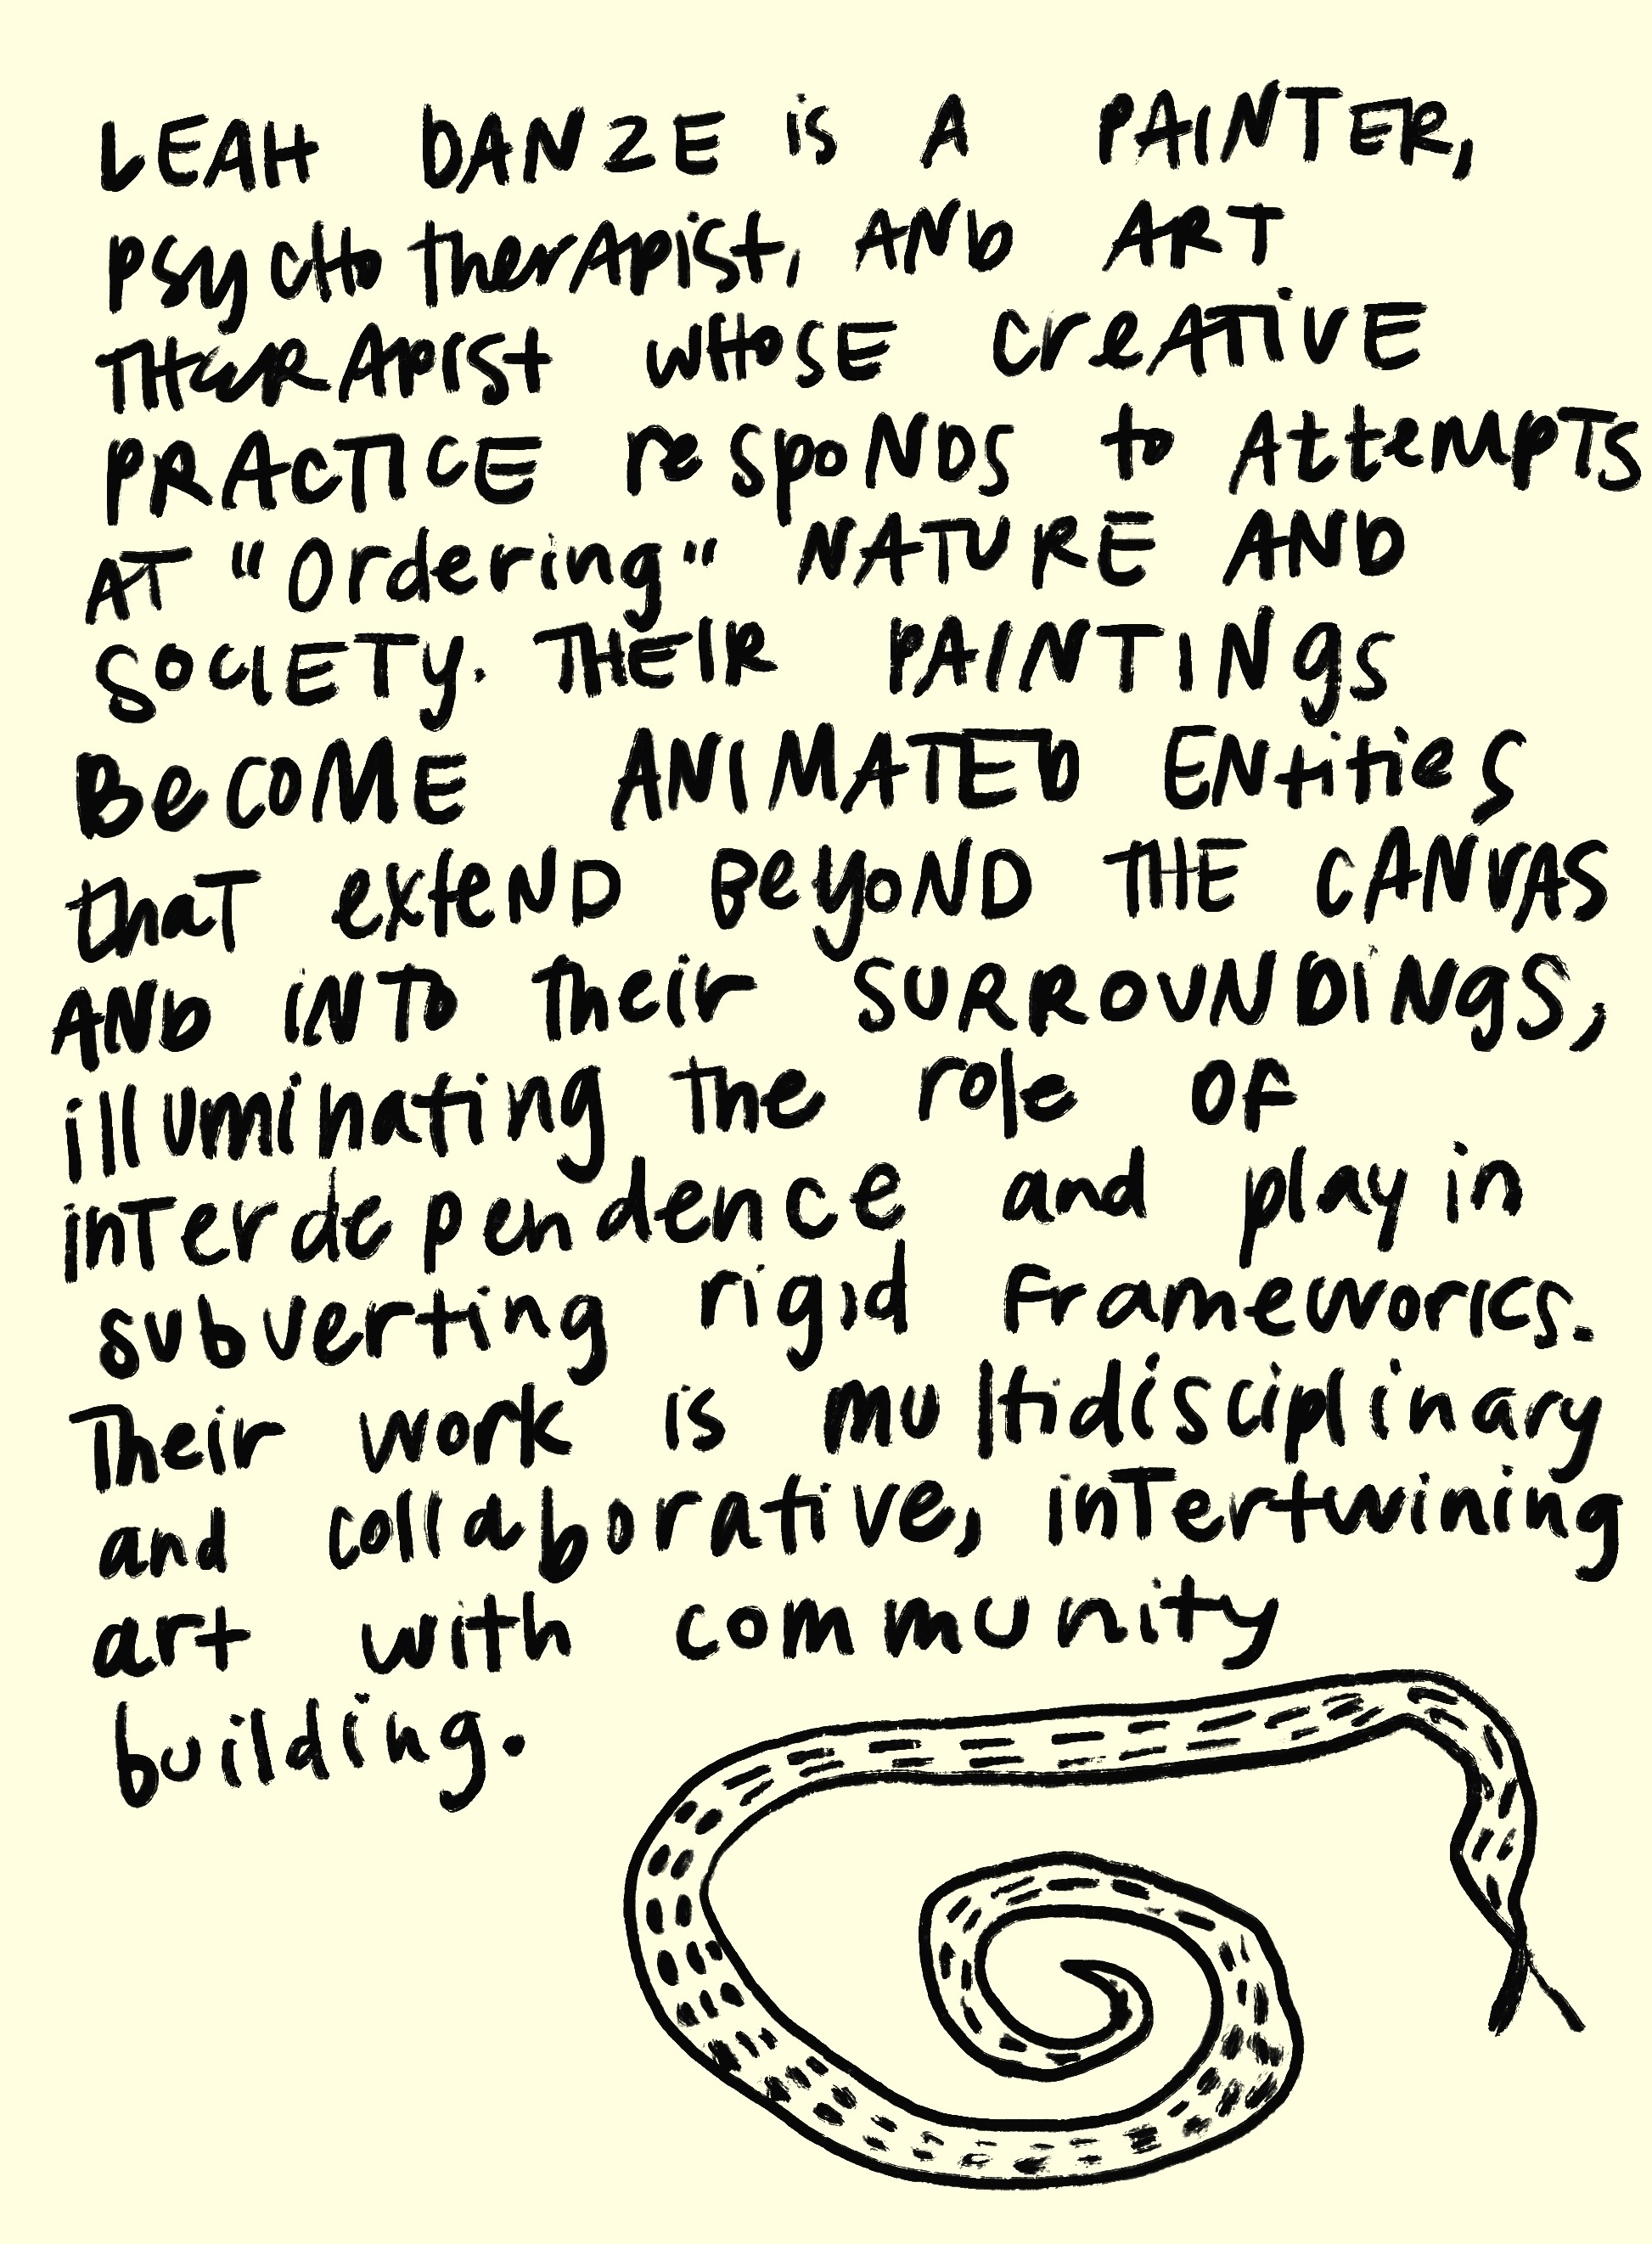 LEAH DANZE is A PAINTER,
PSycHotherApist, ANd ART
THERAPIST wHoSE creATivE
PRACTICE respoNDS to AtteMPTS
AT "Ordering" NATURE AND
SOCIETY. THEIR PAINTINgS
BeCOME ANIMATED ENtitieS
thaT exteND BeyoND THE CANVAS
ANd iNTo their SURROUNDiNgS,
illuminating the role OF
inTerdependence and play in
subverting rigid Frameworks.
Their work is multidisciplinary
and collaborative, inTertwining
art with community
building.